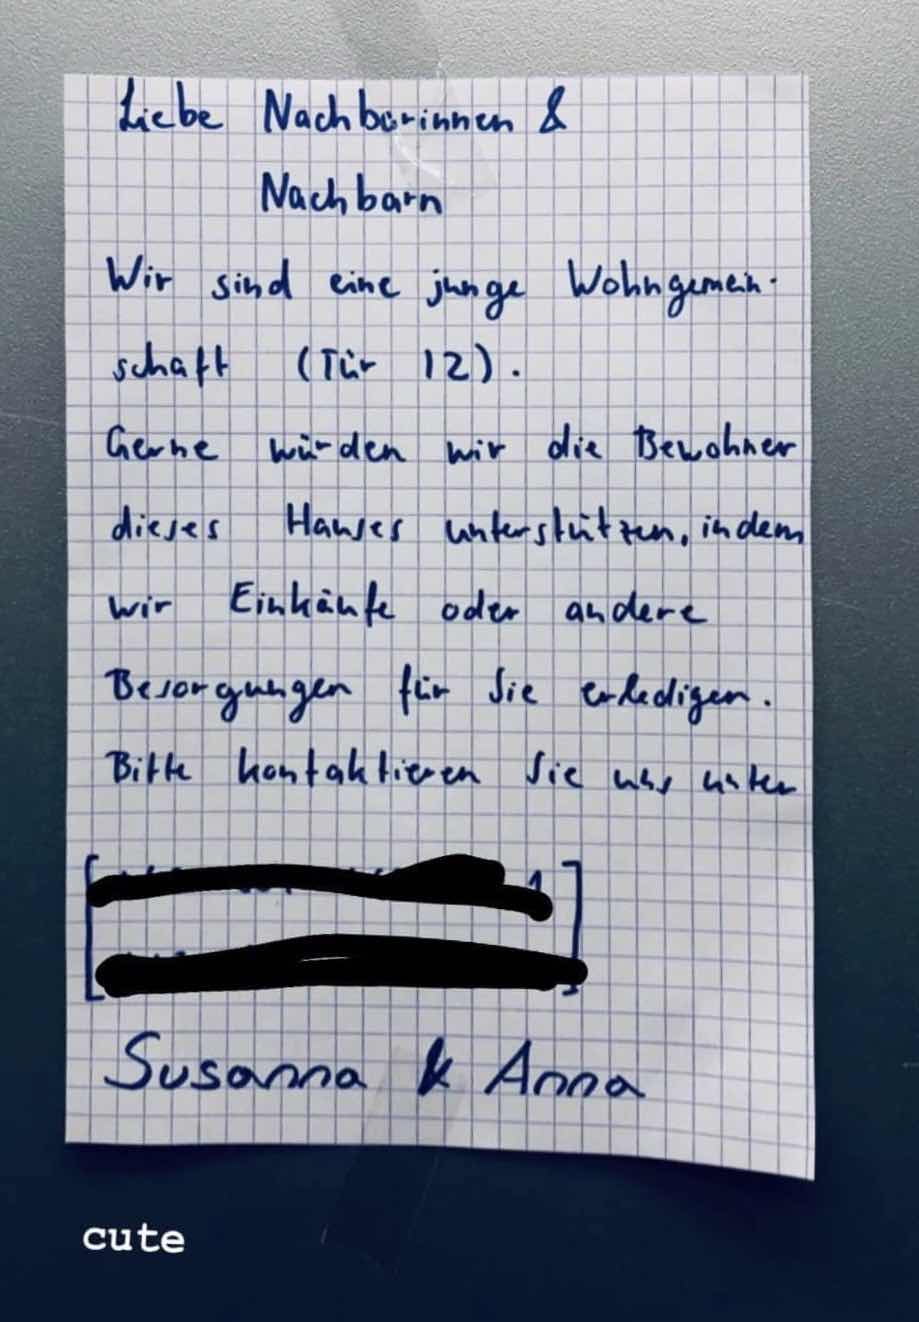 Liebe Nachbarinnen &
Nachbarn
Wir sind eine junge Wohngemein-
schaft (Tür 12).
Gerne würden wir die Bewohner
dieses Hauses unterstützen, indem
wir Einkäufe oder andere
Besorgungen für Sie erledigen.
Bitte kontaktieren Sie uns unter
Susanna & Anna
cute